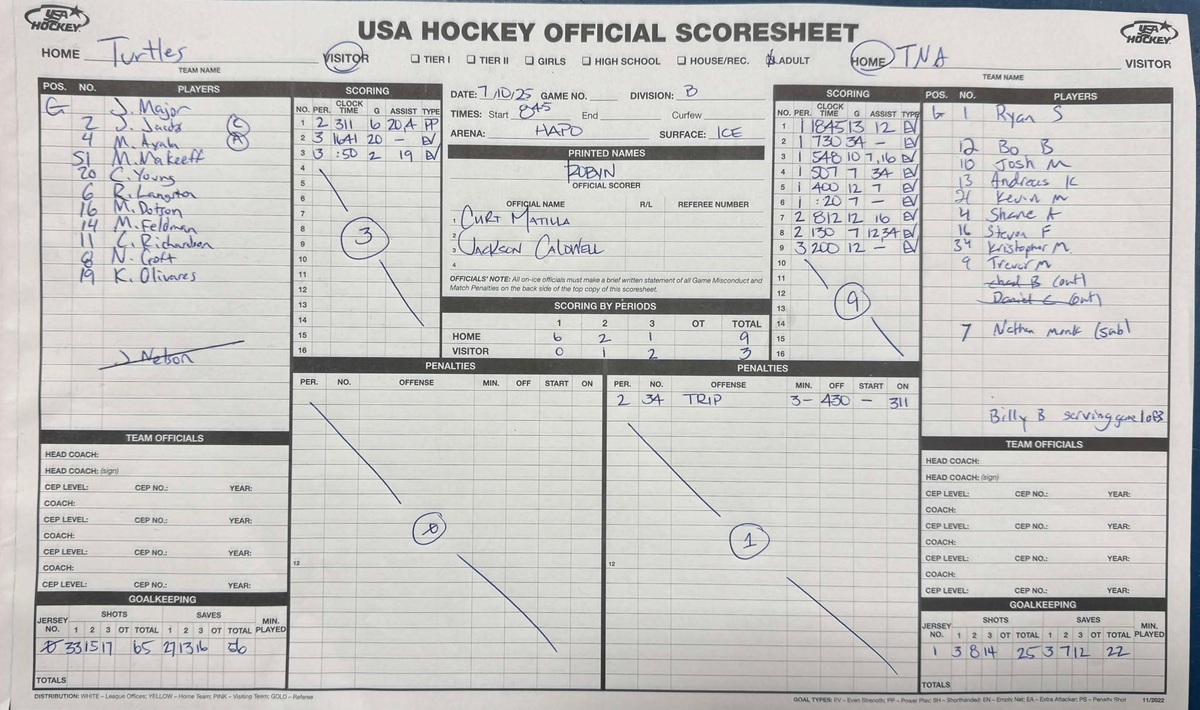 USA HOCKEY
USA HOCKEY OFFICIAL SCORESHEET
USA HOCKEY
HOME Turtles VISITOR
TEAM NAME
☐ TIER I ☐ TIER II ☐ GIRLS ☐ HIGH SCHOOL ☐ HOUSE/REC. ☒ ADULT
HOME TNA VISITOR
TEAM NAME
POS. NO. PLAYERS
G J. Major
2 J. Jacobs C
4 M. Ayah A
51 M. Makeeff
20 C. Young
6 R. Langston
16 M. Dotson
14 M. Feldman
11 C. Richardson
8 N. Croft
19 K. Olivares
J Nelson
SCORING
NO. PER. CLOCK TIME G ASSIST TYPE
1 2 311 6 20,4 PP
2 3 1641 20 - EV
3 3 :50 2 19 EV
4
5
6
7
8
9
10
11
12
13
14
15
16
3
DATE: 7/10/25 GAME NO. DIVISION: B
TIMES: Start 845 End Curfew
ARENA: HAPO SURFACE: ICE
PRINTED NAMES
ROBYN
OFFICIAL SCORER
OFFICIAL NAME R/L REFEREE NUMBER
1 CURT MATILLA
2
3 JACKSON CALDWELL
4
OFFICIALS' NOTE: All on-ice officials must make a brief written statement of all Game Misconduct and
Match Penalties on the back side of the top copy of this scoresheet.
SCORING BY PERIODS
1 2 3 OT TOTAL
HOME 6 2 1 9
VISITOR 0 1 2 3
SCORING
NO. PER. CLOCK TIME G ASSIST TYPE
1 1 1845 13 12 EV
2 1 730 34 - EV
3 1 548 10 7,16 EV
4 1 507 7 34 EV
5 1 400 12 7 EV
6 1 :20 7 - EV
7 2 812 12 16 EV
8 2 130 7 1234 EV
9 3 200 12 - EV
10
11
12
13
14
15
16
9
POS. NO. PLAYERS
G 1 Ryan S
12 Bo B
10 Josh M
13 Andreas K
21 Kevin M
4 Shane A
16 Steven F
34 Kristopher M.
9 Trevor M
Chad B (out)
Daniel C (out)
7 Nathan Monk (sub)
Billy B serving game 1 of 3
PENALTIES
PER. NO. OFFENSE MIN. OFF START ON
12
0
PENALTIES
PER. NO. OFFENSE MIN. OFF START ON
2 34 TRIP 3- 430 - 311
12
1
TEAM OFFICIALS
HEAD COACH:
HEAD COACH: (sign)
CEP LEVEL: CEP NO.: YEAR:
COACH:
CEP LEVEL: CEP NO.: YEAR:
COACH:
CEP LEVEL: CEP NO.: YEAR:
COACH:
CEP LEVEL: CEP NO.: YEAR:
GOALKEEPING
SHOTS SAVES
JERSEY NO. 1 2 3 OT TOTAL 1 2 3 OT TOTAL MIN. PLAYED
0 33 15 17 65 27 13 16 56
TOTALS
TEAM OFFICIALS
HEAD COACH:
HEAD COACH: (sign)
CEP LEVEL: CEP NO.: YEAR:
COACH:
CEP LEVEL: CEP NO.: YEAR:
COACH:
CEP LEVEL: CEP NO.: YEAR:
COACH:
CEP LEVEL: CEP NO.: YEAR:
GOALKEEPING
SHOTS SAVES
JERSEY NO. 1 2 3 OT TOTAL 1 2 3 OT TOTAL MIN. PLAYED
1 3 8 14 25 3 7 12 22
TOTALS
DISTRIBUTION: WHITE – League Offices; YELLOW – Home Team; PINK – Visiting Team; GOLD – Referee
GOAL TYPES: EV – Even Strength; PP – Power Play; SH – Shorthanded; EN – Empty Net; EA – Extra Attacker; PS – Penalty Shot 11/2022